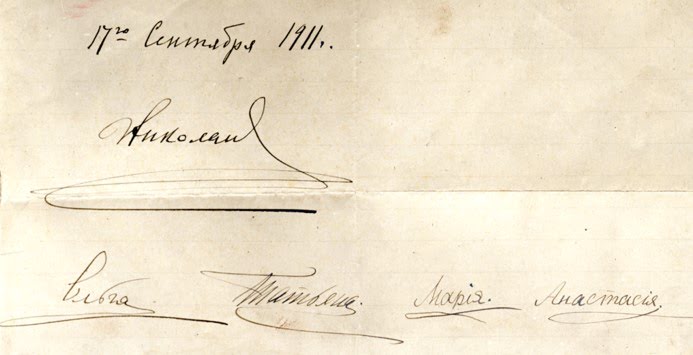 17го Сентября 1911г.
Николай
Ольга. Татьяна. Марія. Анастасія.